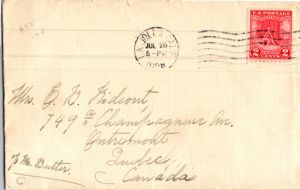 LA JOLLA
JUL 26
6-PM
1928
U.S. POSTAGE
2 CENTS 2
Mrs. G. B. Hideout
749 Champagneur Av.
Outremont
Quebec
Canada
℅ Mr. Butler